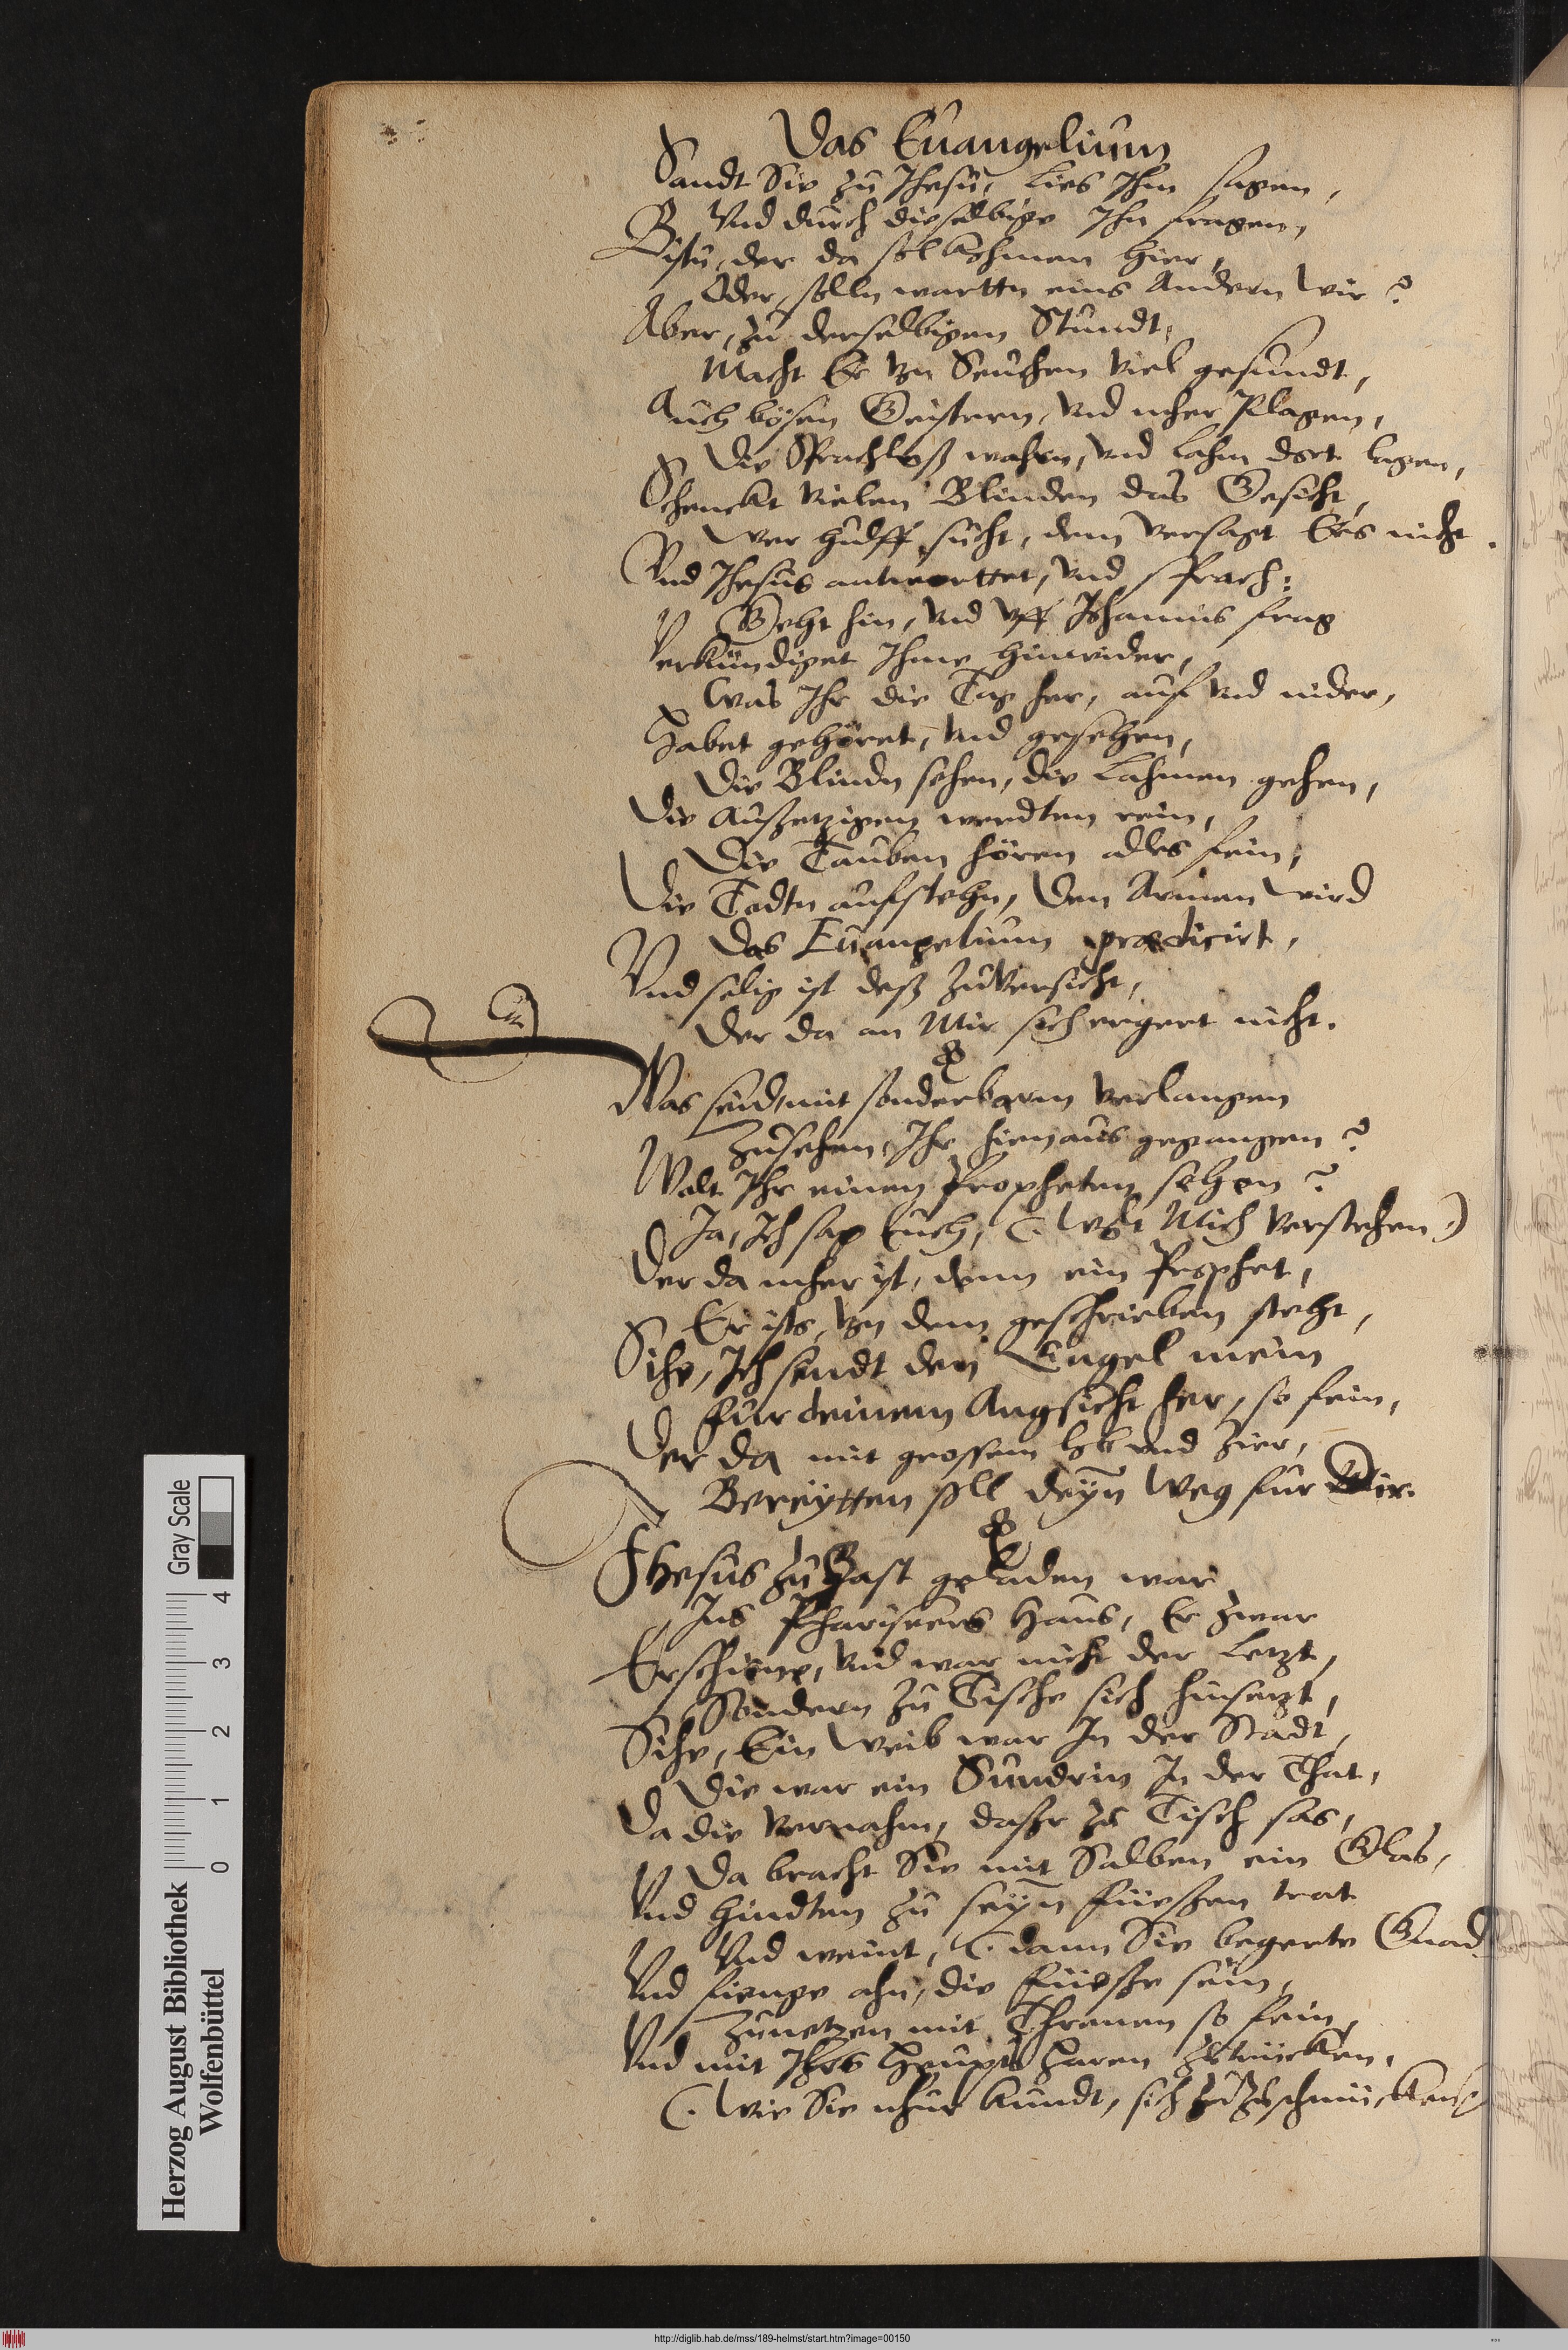 Das Euangelium
Sandt Sie zu Jhesu, lies Ihm sagen,
Vnd durch dieselbige Ihn fragen,
Bistu, der da sol kohmen hier,
Oder, solln wartten eins Andern wir?
Aber, zu derselbigen Stundt,
Macht Er von Seuchen viel gesundt,
Auch bösen Geistern, vnd mher Plagen,
Die Sprachloß wahren, vnd lahm dort lagen,
Schenckt vielen Blinden das Gesicht,
Wer hulff sucht, dem versagt Ers nicht.
Vnd Jhesus antworttet, vnd sprach:
Geht hin, vnd vff Johannis frag
Verkündiget Ihme hinwider,
Was Ihr die Tag her, auf vnd nider,
Habet gehöret, vnd gesehen,
Die Blindn sehen, die Lahmen gehen,
Die Außetzigen werdten rein,
Die Tauben hören alles fein,
Die Todtn aufstehn, Den Armen wird
Das Euangelium praedicirt,
Vnd selig ist deß zuversicht,
Der da an Mir sich ergert nicht.
Was seid, mit sonderbarm verlangen
Zusehen, Ihr hienaus gegangen?
Wolt Ihr einen Propheten sehen?
Ja, Ich sag Euch, (: Wolt Mich verstehen)
Der da mher ist, denn ein Prophet,
Er ists, von dem geschrieben steht,
Sihe, Ich sendt den Engel mein
Fur deinem Angsicht her, so fein,
Der da mit grossem lob vnd zier,
Bereytten soll deyn Weg fur Dir.
Jhesus zu Gast geladen war
Ins Phariseers Haus, Er zwar
Erschiene, vnd war nicht der Letzt,
Sondern zu Tische sich hinsetzt,
Sihe, Ein Weib war In der Stadt,
Die war ein Sundrin In der That,
Da die vernahm, daßr zu Tisch sas,
Da bracht Sie mit Salben ein Glas,
Vnd hindten zu seyn füeßen trat
Vnd weint, (: dann Sie begerte Gnad
Vnd fienge ahn, die füeße sein,
Zunetzen mit Threnen so fein,
Vnd mit Ihres Heupts Haren zutrücken,
(: Wie Sie nhur kundt, sich zuzuschmücken
Herzog August Bibliothek
Wolfenbüttel
0 1 2 3 4
Gray Scale
http://diglib.hab.de/mss/189-helmst/start.htm?image=00150